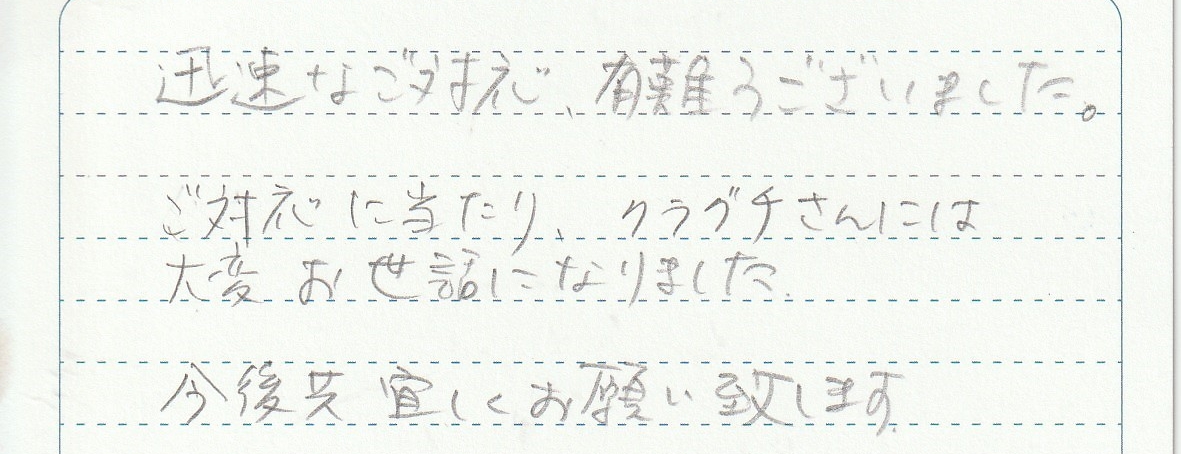 迅速なご対応、有難うございました。
ご対応に当たり、クラブチさんには
大変お世話になりました.
今後共宜しくお願い致します.